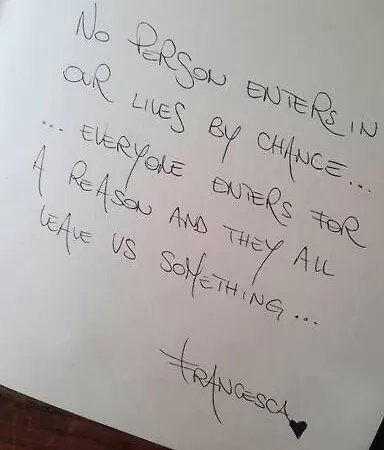 NO PERSON ENTERS IN
OUR LIVES BY CHANCE...
... EVERYONE ENTERS FOR
A REASON AND THEY ALL
LEAVE US SOMETHING...
FRANCESCA♥